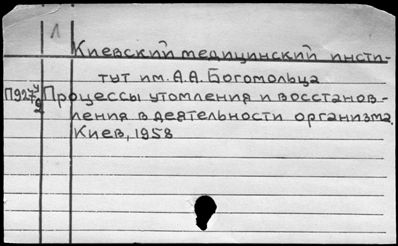 1
Киевский медицинский инсти-
тут им. А.А. Богомольца
П927 у/2 Процессы утомления и восстанов-
ления в деятельности организма.
Киев, 1958